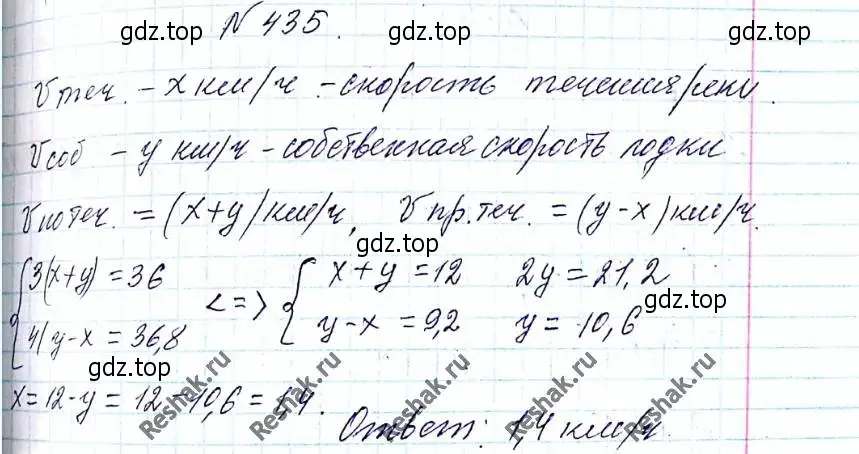 gdz.top gdz.top
№ 435.
Vтеч. – x км/ч – скорость течения реки.
Vсоб – y км/ч – собственная скорость лодки
Vпо теч. = (x+y) км/ч, Vпр. теч. = (y-x) км/ч.
gdz.top
{3(x+y) = 36 <=> {x+y = 12 2y = 21,2
gdz.top gdz.top
4(y-x = 36,8 y-x = 9,2 y = 10,6
gdz.top
x = 12-y = 12-10,6 = 1,4.
Ответ: 1,4 км/ч.
Reshak.ru Reshak.ru Reshak.ru Reshak.ru Reshak.ru